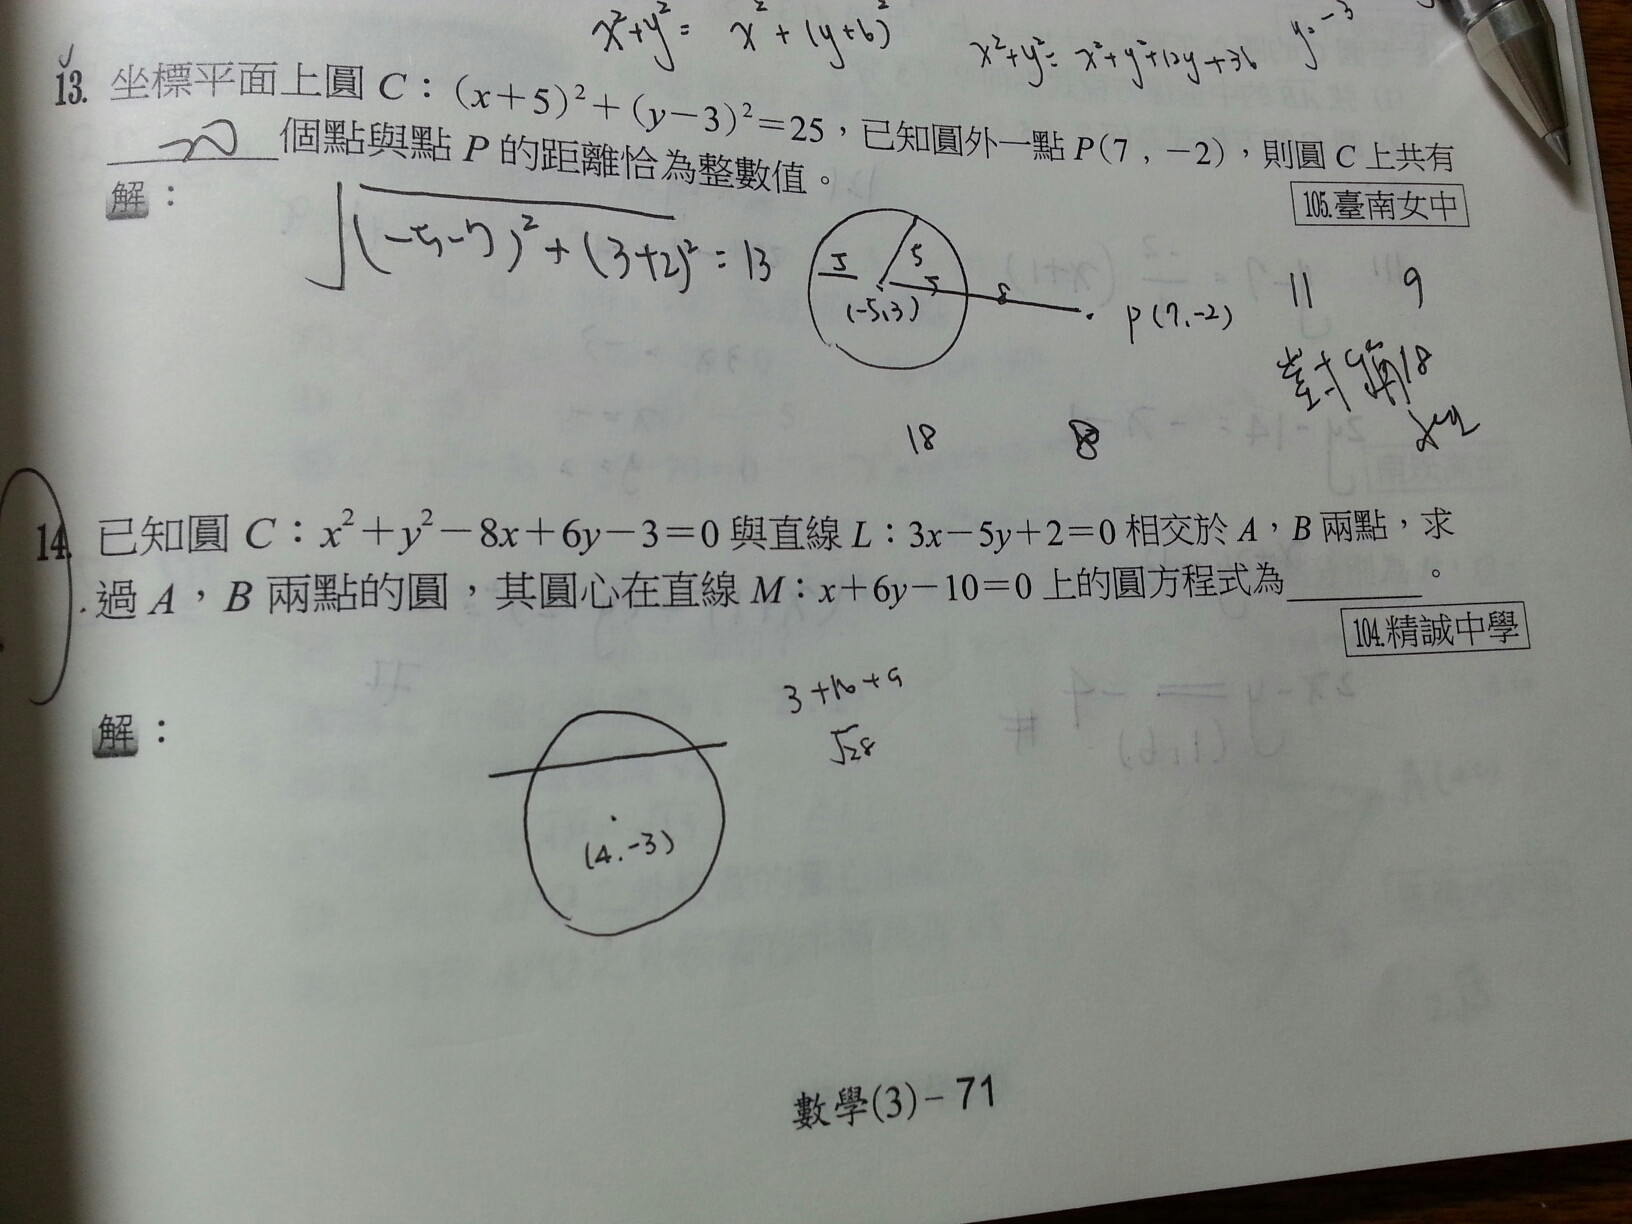 x²+y²= x²+(y+6)²
x²+y²= x²+y²+12y+36
y=-3
13. 坐標平面上圓 C：(x+5)²+(y-3)²=25，已知圓外一點 P(7，-2)，則圓 C 上共有
20 個點與點 P 的距離恰為整數值。
105.臺南女中
解：
√(-5-7)²+(3+2)²=13
5
5
5
8
(-5,3)
P(7,-2)
11 9
對稱
18
18
8
14. 已知圓 C：x²+y²-8x+6y-3=0 與直線 L：3x-5y+2=0 相交於 A，B 兩點，求
過 A，B 兩點的圓，其圓心在直線 M：x+6y-10=0 上的圓方程式為________。
104.精誠中學
解：
3+16+9
√28
(4,-3)
數學(3)-71